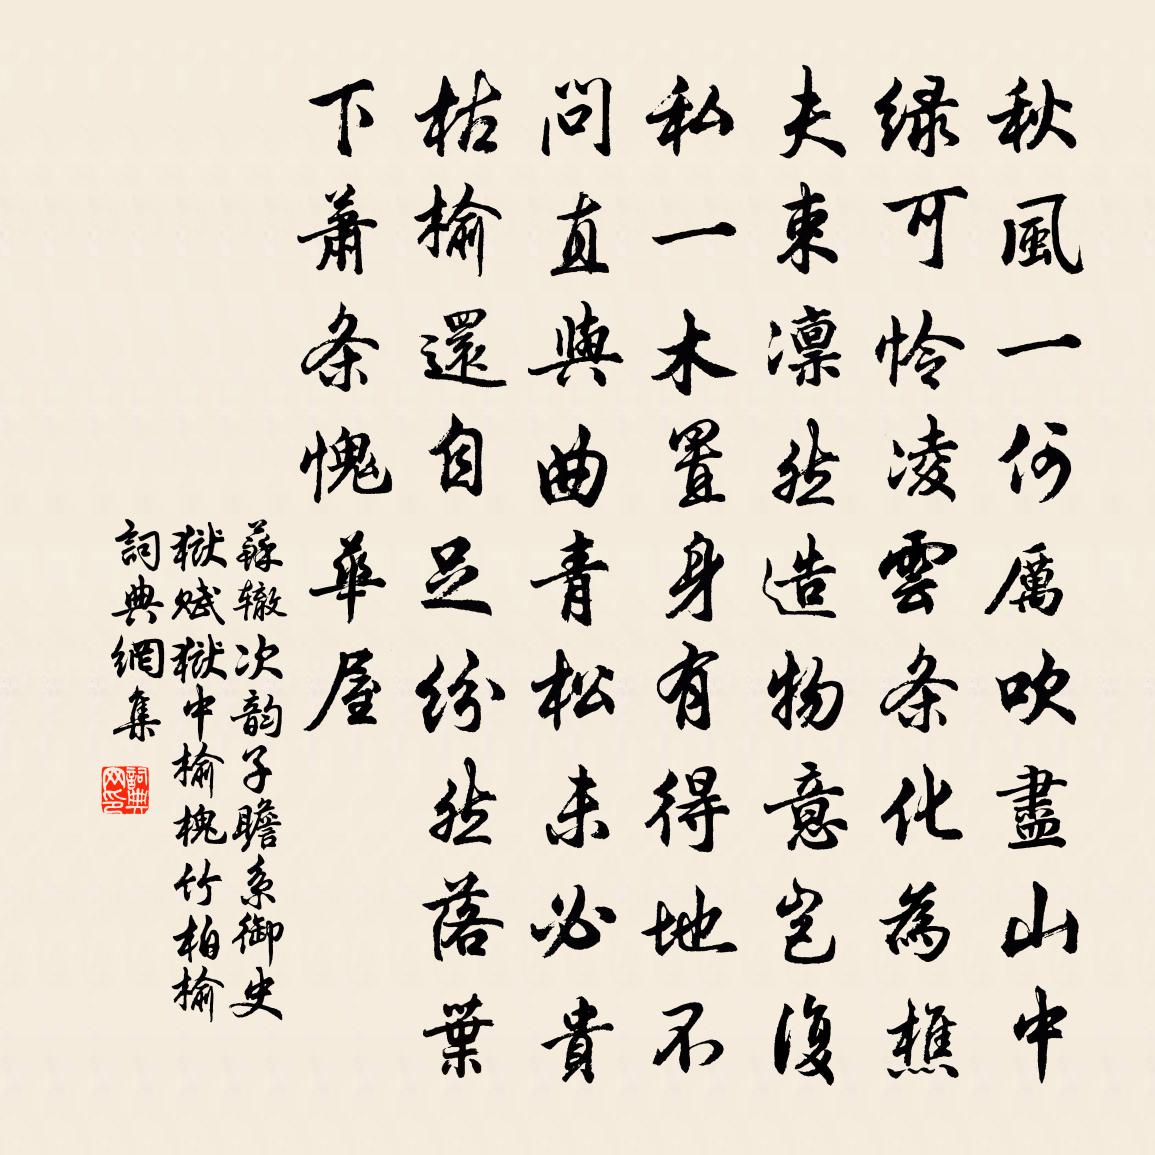 秋風一何厲吹盡山中
绿可怜凌雲条化為樵
夫束凛然造物意岂復
私一木置身有得地不
問直與曲青松未必貴
枯榆還自足纷然落葉
下蕭条愧華屋
蘇辙次韵子瞻系御史
獄赋獄中榆槐竹柏榆
詞典網集
詞典网印